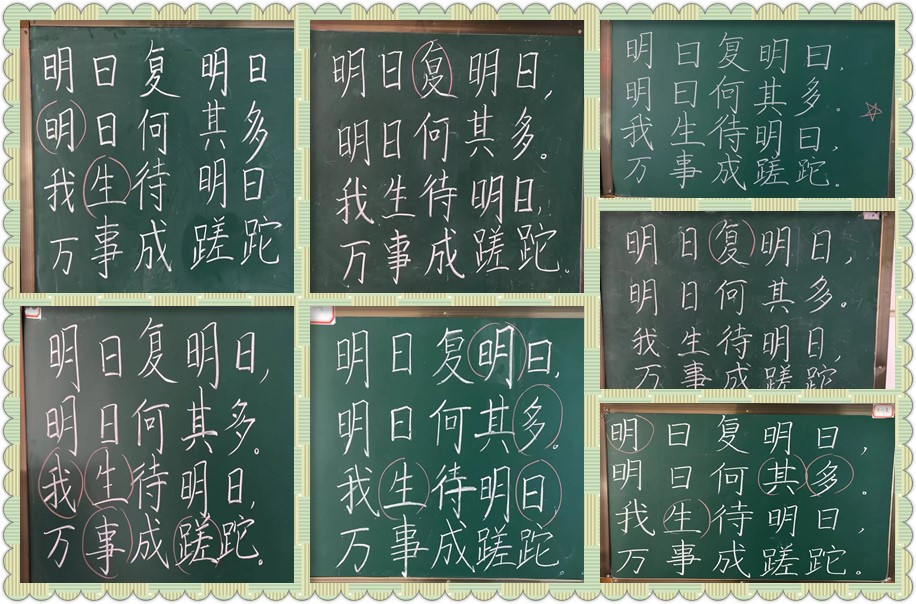 明日复明日
明日何其多
我生待明日
万事成蹉跎
明日复明日,
明日何其多。
我生待明日,
万事成蹉跎。
明日复明日,
明日何其多。
我生待明日,
万事成蹉跎。
明日复明日,
明日何其多。
我生待明日,
万事成蹉跎
明日复明日,
明日何其多。
我生待明日,
万事成蹉跎。
明日复明日,
明日何其多。
我生待明日,
万事成蹉跎。
明日复明日,
明日何其多。
我生待明日,
万事成蹉跎。